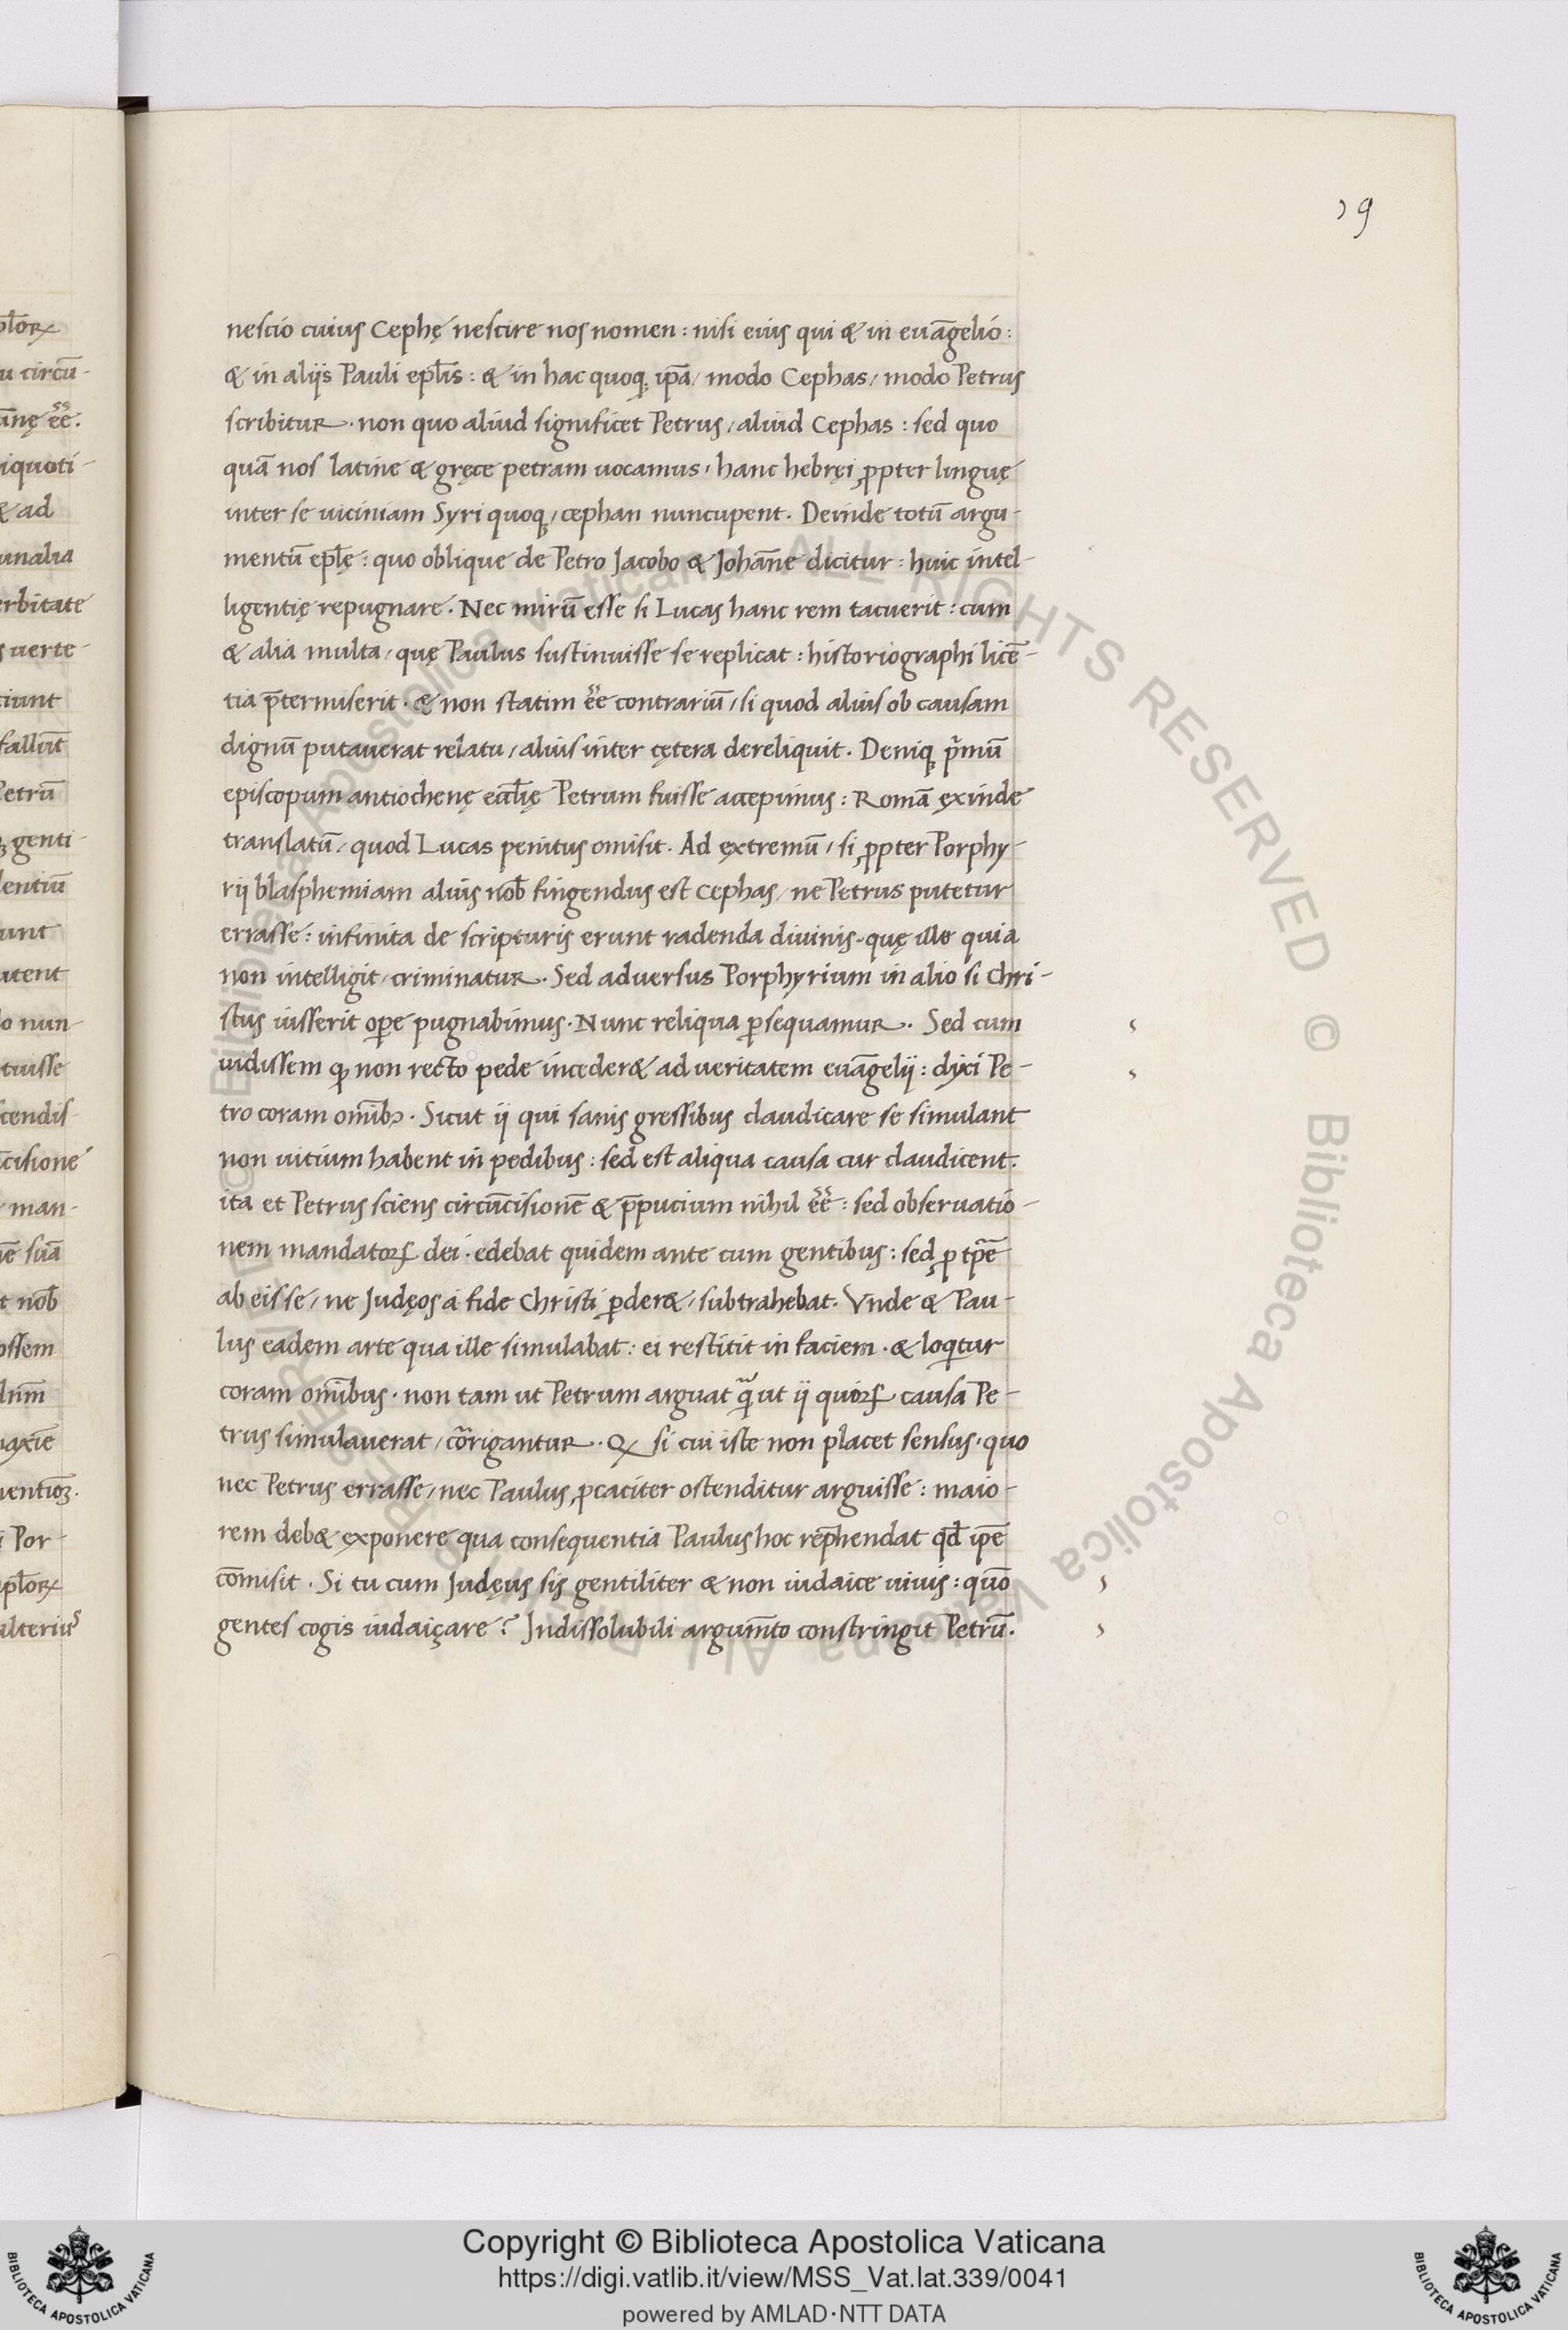 19
nescio cuius Cephę nescire nos nomen : nisi eius qui & in euāgelio :
& in aliis Pauli epl̄is : & in hac quoq; ip̄a / modo Cephas / modo Petrus
scribitur . non quo aliud significet Petrus / aliud Cephas : sed quo
quā nos latine & gręce petram uocamus / hanc hebręi ꝓpter linguę
inter se uiciniam Syri quoq; / cephan nuncupent . Deinde totū argu-
mentū epl̄ę : quo oblique de Petro Jacobo & Johāne dicitur : huic intel-
ligentię repugnare . Nec mirū esse si Lucas hanc rem tacuerit : cum
& alia multa / quę Paulus sustinuisse se replicat : historiographi licē-
tia p̄termiserit . & non statim ēe contrariū / si quod alius ob causam
dignū putauerat relatu / alius inter cętera dereliquit . Deniq; p̄mū
episcopum antiochenę eccl̄ię Petrum fuisse accepimus : Romā ęxinde
translatū / quod Lucas penitus omisit . Ad extremū / si ꝓpter Porphy-
rij blasphemiam alius nob̄ fingendus est Cephas / ne Petrus putetur
errasse : infinita de scripturis erunt radenda diuinis - quę ille quia
non intelligit / criminatur . Sed aduersus Porphyrium in alio si Chri-
stus iusserit oꝑe pugnabimus . Nunc reliqua ꝑsequamur . Sed cum
uidissem ꝙ non recto pede inceder& ad ueritatem euāgelij : dixi Pe-
tro coram om̄ibꝰ . Sicut ij qui sanis gressibus claudicare se simulant
non uitium habent in pedibus : sed est aliqua causa cur claudicent .
ita et Petrus sciens circūcisionē & p̄pucium nihil ēe : sed obseruatio-
nem mandatoꝝ dei . edebat quidem ante cum gentibus : sed ꝓ tp̄e
ab eis se / ne Judęos a fide Christi ꝑder& / subtrahebat . Vnde & Pau-
lus eadem arte qua ille simulabat : ei restitit in faciem . & loqtur
coram om̄ibus . non tam ut Petrum arguat q̄ ut ij quoꝝ causa Pe-
trus simulauerat / cōrigantur . Qꝫ si cui iste non placet sensus / quo
nec Petrus errasse / nec Paulus ꝓcaciter ostenditur arguisse : maio-
rem deb& exponere qua consequentia Paulus hoc rep̄hendat qd̄ ip̄e
cōmisit . Si tu cum Judęus sis gentiliter & non iudaice uiuis : quō
gentes cogis iudaiçare ? Indissolubili argum̄to constringit Petrū .
Copyright © Biblioteca Apostolica Vaticana
https://digi.vatlib.it/view/MSS_Vat.lat.339/0041
powered by AMLAD·NTT DATA